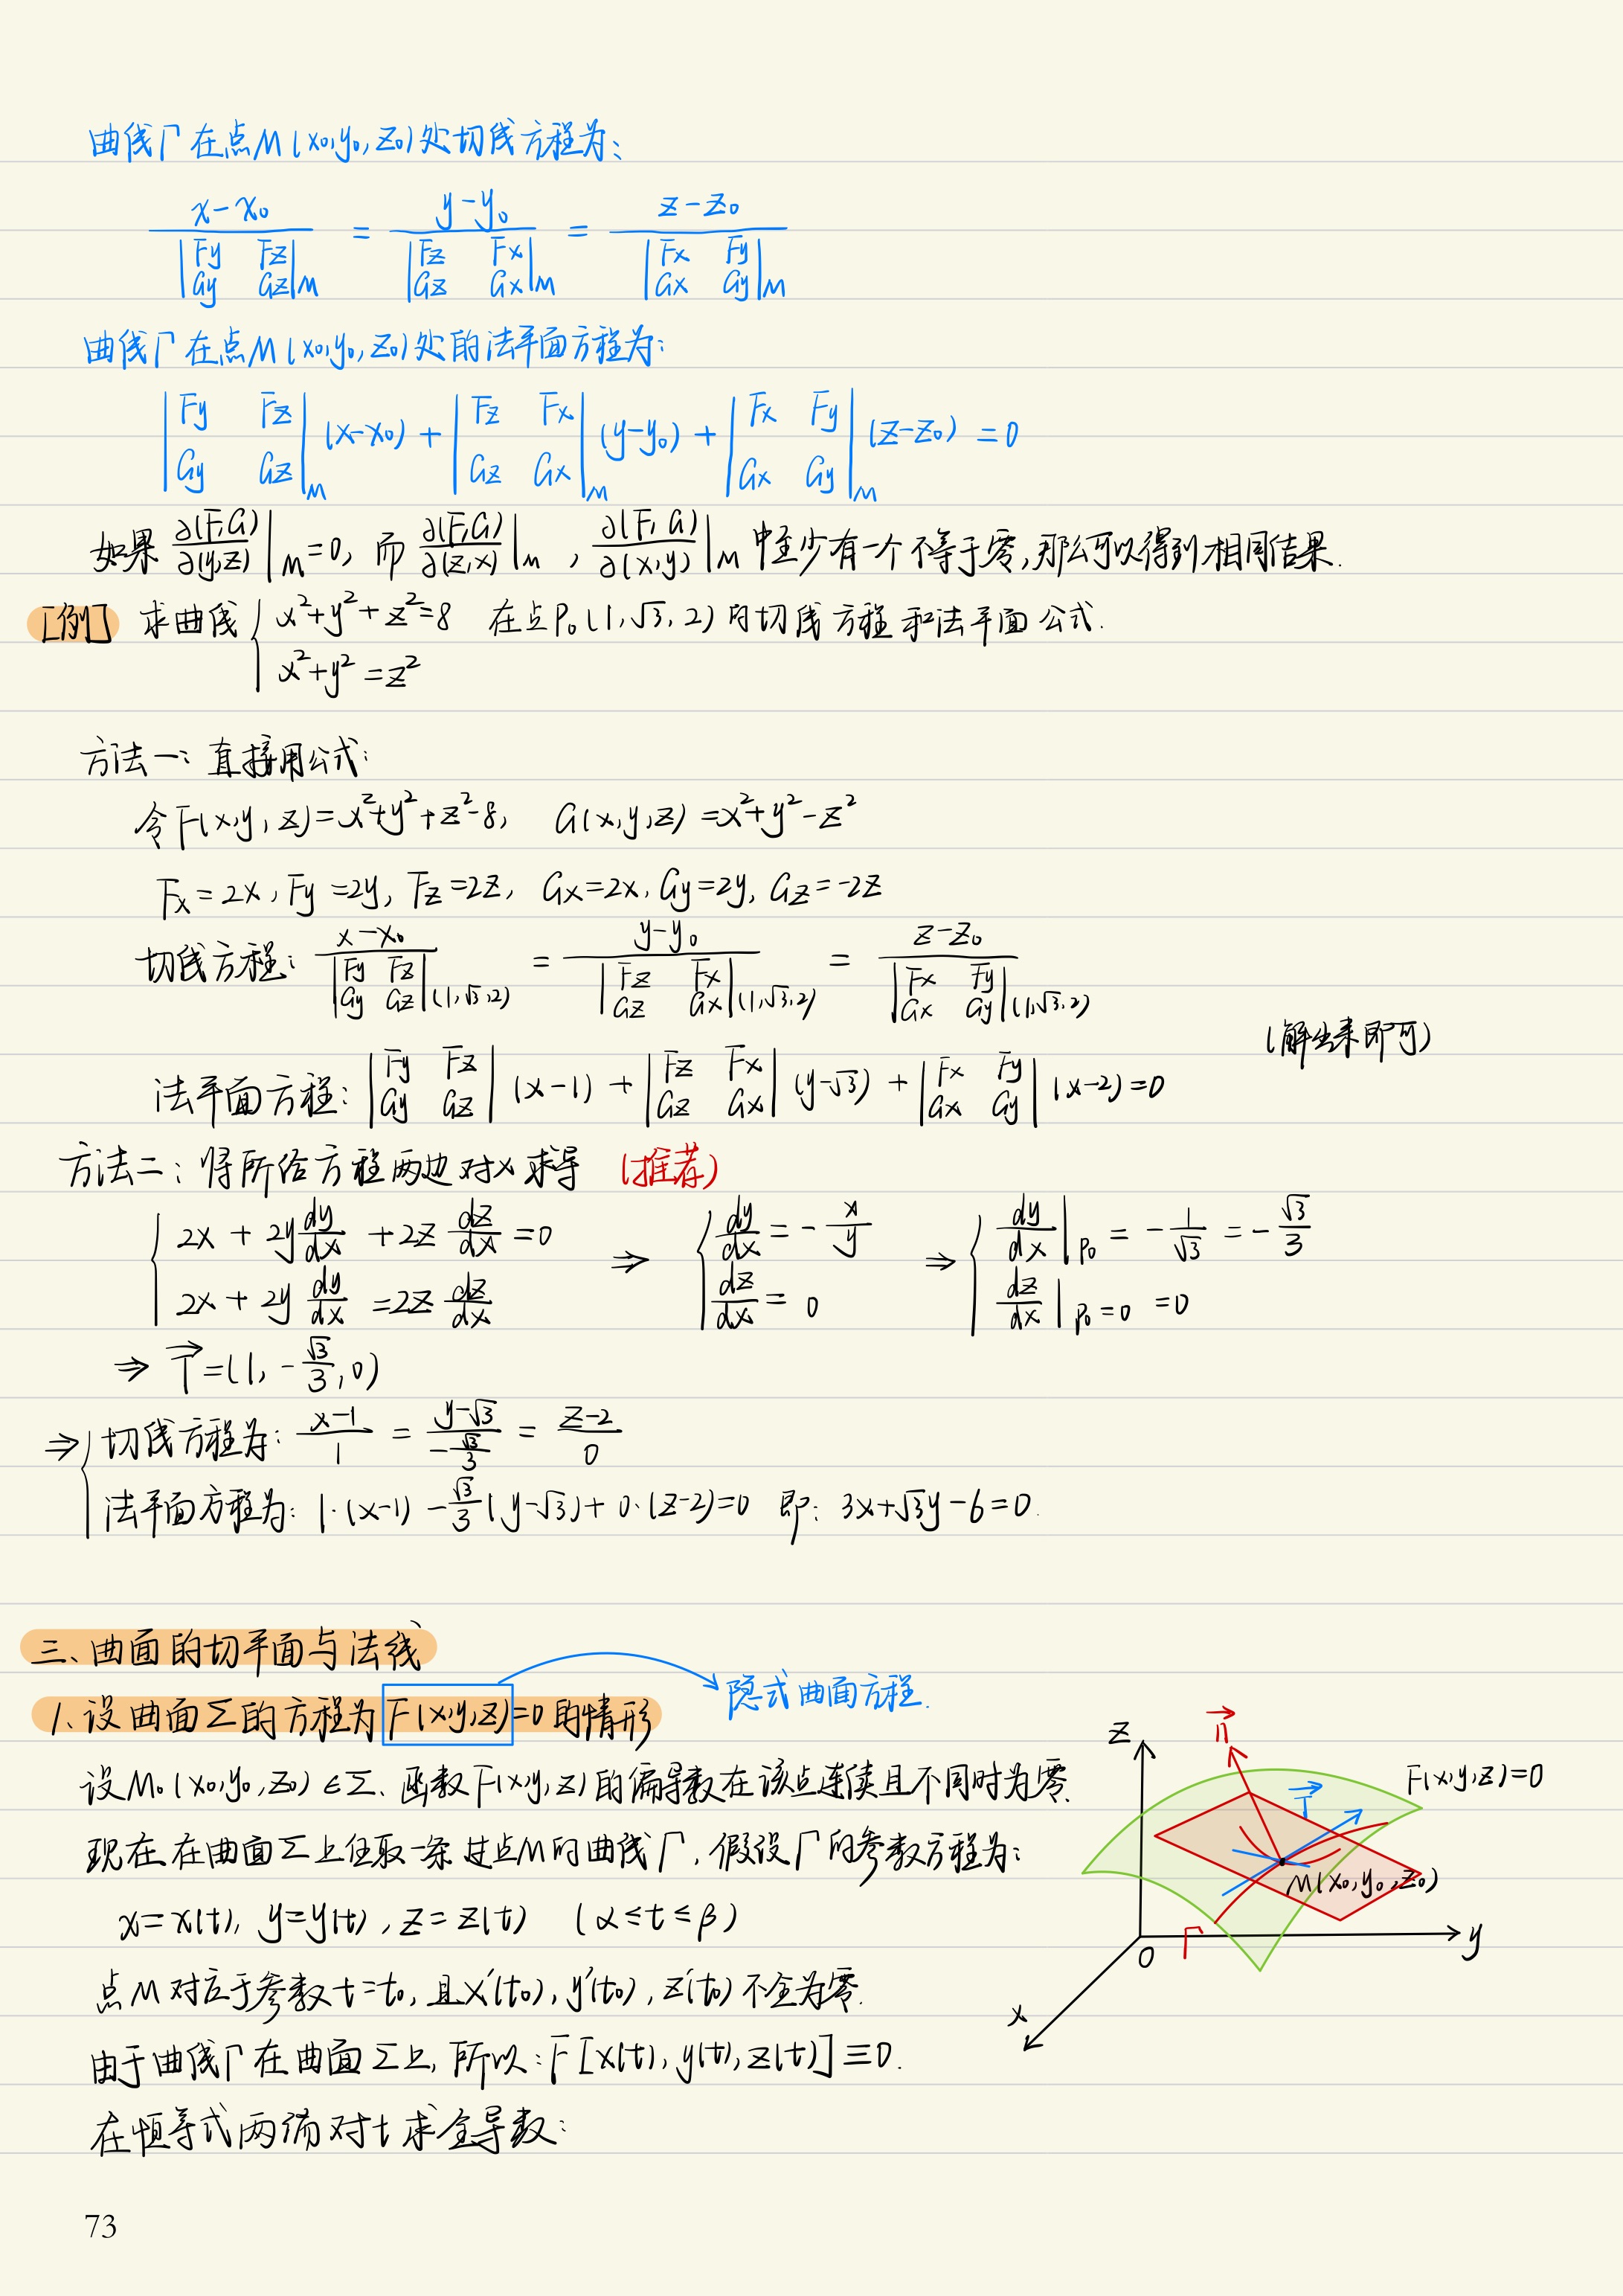 曲线Γ在点M(x₀,y₀,z₀)处切线方程为:
(x-x₀)/|Fy Fz; Gy Gz|_M = (y-y₀)/|Fz Fx; Gz Gx|_M = (z-z₀)/|Fx Fy; Gx Gy|_M
曲线Γ在点M(x₀,y₀,z₀)处的法平面方程为:
|Fy Fz; Gy Gz|_M (x-x₀) + |Fz Fx; Gz Gx|_M (y-y₀) + |Fx Fy; Gx Gy|_M (z-z₀) = 0
如果 ∂(F,G)/∂(y,z)|_M = 0, 而 ∂(F,G)/∂(z,x)|_M , ∂(F,G)/∂(x,y)|_M 中至少有一个不等于零,那么可以得到相同结果.
[例] 求曲线 { x²+y²+z²=8 在点P₀(1,√3,2)的切线方程和法平面公式.
x²+y²=z²
方法一: 直接用公式:
令F(x,y,z)=x²+y²+z²-8, G(x,y,z)=x²+y²-z²
Fx=2x, Fy=2y, Fz=2z, Gx=2x, Gy=2y, Gz=-2z
切线方程: (x-x₀)/|Fy Fz; Gy Gz|_(1,√3,2) = (y-y₀)/|Fz Fx; Gz Gx|_(1,√3,2) = (z-z₀)/|Fx Fy; Gx Gy|_(1,√3,2)
(解出来即可)
法平面方程: |Fy Fz; Gy Gz| (x-1) + |Fz Fx; Gz Gx| (y-√3) + |Fx Fy; Gx Gy| (x-2)=0
方法二: 将所给方程两边对x求导 (推荐)
{ 2x + 2y dy/dx + 2z dz/dx = 0 ⇒ { dy/dx = -x/y ⇒ { dy/dx|_P₀ = -1/√3 = -√3/3
2x + 2y dy/dx = 2z dz/dx dz/dx = 0 dz/dx|_P₀=0 = 0
⇒ T⃗=(1, -√3/3, 0)
⇒ { 切线方程为: (x-1)/1 = (y-√3)/(-√3/3) = (z-2)/0
法平面方程为: 1·(x-1) - √3/3(y-√3) + 0·(z-2)=0 即: 3x+√3y-6=0.
三、曲面的切平面与法线
1、设曲面Σ的方程为F(x,y,z)=0的情形
隐式曲面方程.
设M₀(x₀,y₀,z₀)∈Σ、函数F(x,y,z)的偏导数在该点连续且不同时为零.
现在在曲面Σ上任取一条过点M的曲线Γ, 假设Γ的参数方程为:
x=x(t), y=y(t), z=z(t) (α≤t≤β)
点M对应于参数t=t₀, 且x'(t₀), y'(t₀), z'(t₀)不全为零.
由于曲线Γ在曲面Σ上, 所以: F[x(t), y(t), z(t)]≡0.
在恒等式两端对t求全导数:
z
n⃗
T⃗
F(x,y,z)=0
M(x₀,y₀,z₀)
Γ
O
y
x
73